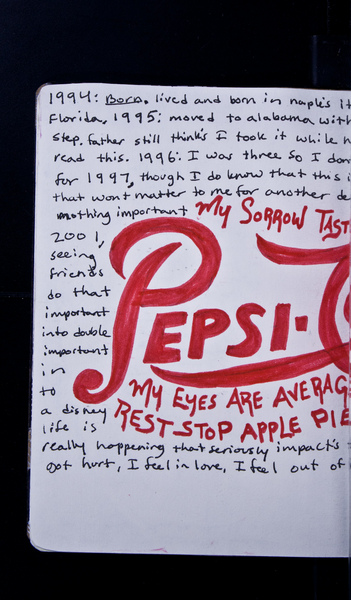 1994: Born. lived and born in naple's it
Florida, 1995: moved to alabama with
step. father still think's I took it while h
read this. 1996: I was three so I don
for 1997, though I do know that this i
that wont matter to me for another de
nothing important
MY SORROW TAST
2001,
seeing
friends
do that
important
into double
important
in
to
a disney
life is
PEPSI-C
MY EYES ARE AVERAG
REST STOP APPLE PIE
really happening that seriously impact's
got hurt, I feel in love, I feel out of